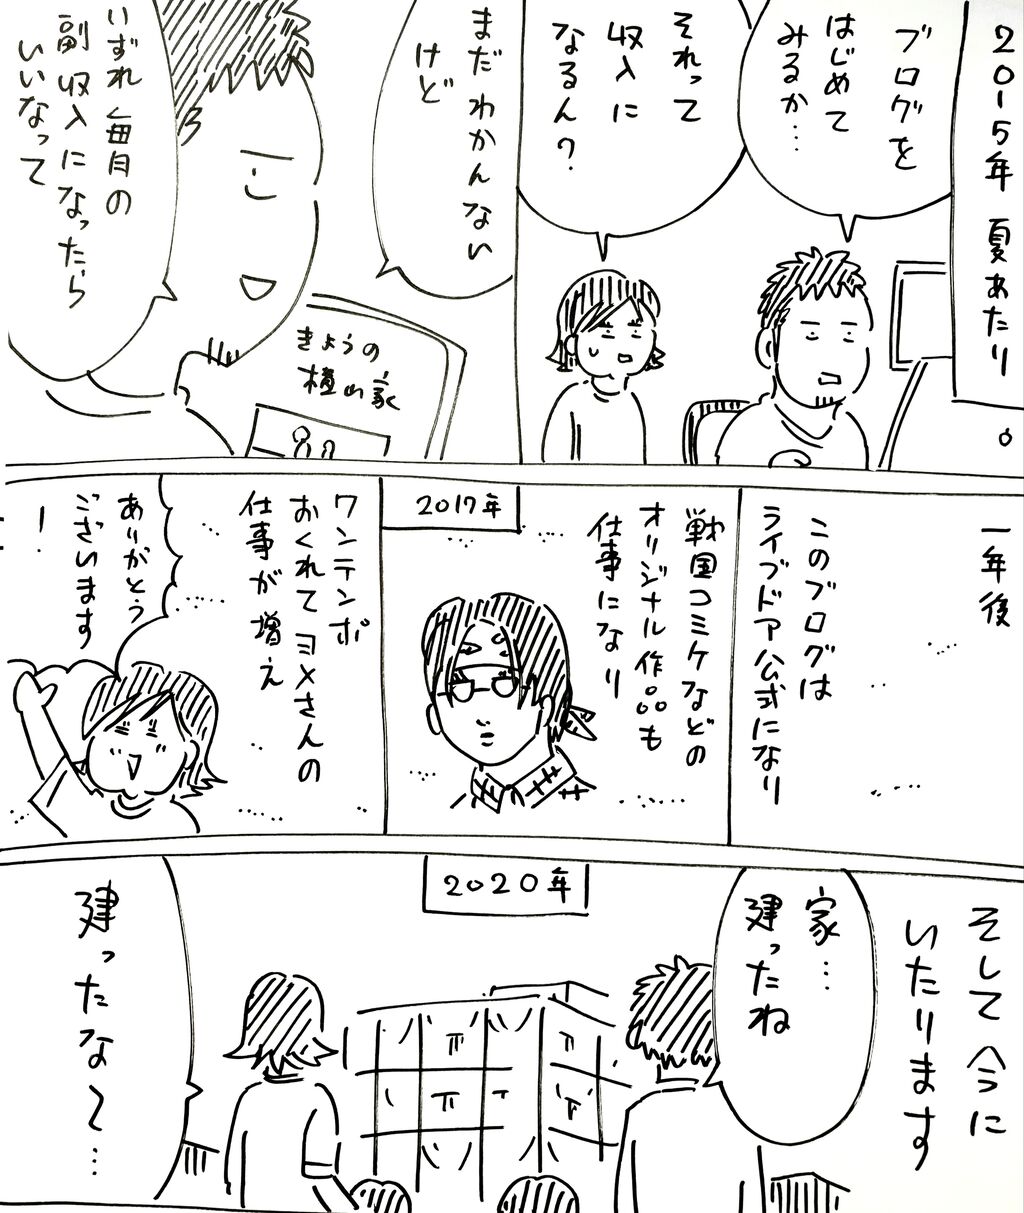 2015年 夏あたり。
ブログを
はじめて
みるか…
それって
収入に
なるん?
まだわかんない
けど
いずれ毎月の
副収入になったら
いいなって
きょうの
横山家
一年後
このブログは
ライブドア公式になり
2017年
戦国コミケなどの
オリジナル作品も
仕事になり
ワンテンポ
おくれてヨメさんの
仕事が増え
ありがとう
ございます
!
そして今に
いたります
2020年
家…
建ったね
建ったな〜…